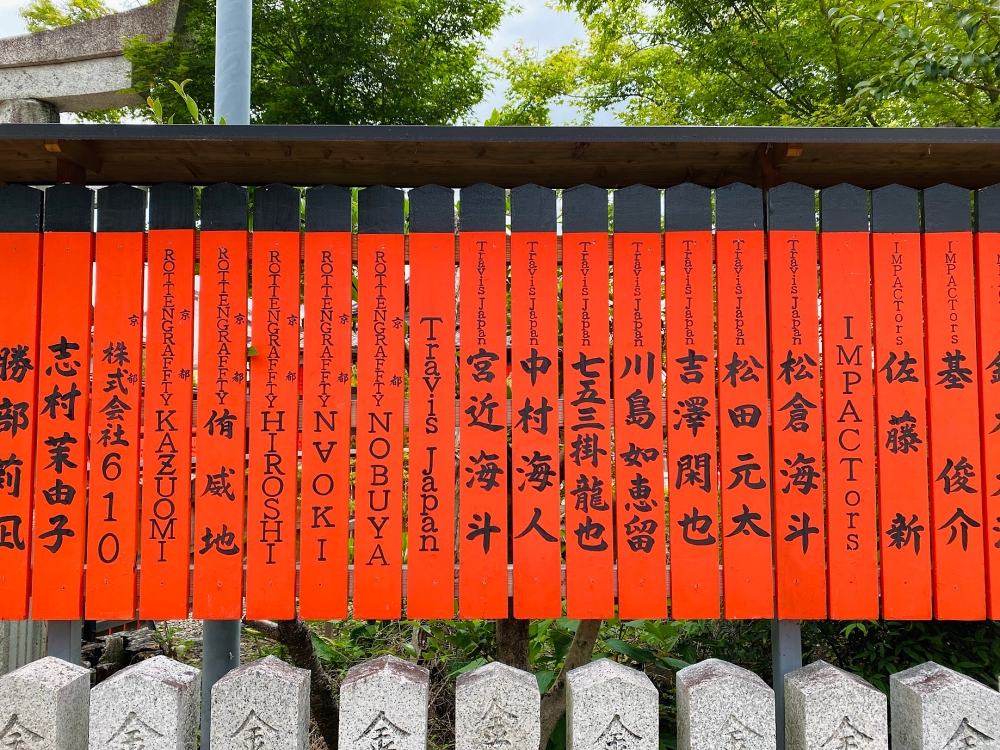 勝部莉凪
志村茉由子
京都
株式会社610
京都
ROTTENGRAFFTY KAZUOMI
京都
ROTTENGRAFFTY 侑威地
京都
ROTTENGRAFFTY HIROSHI
京都
ROTTENGRAFFTY N∀OKI
京都
ROTTENGRAFFTY NOBUYA
Travis Japan
Travis Japan 宮近海斗
Travis Japan 中村海人
Travis Japan 七五三掛龍也
Travis Japan 川島如恵留
Travis Japan 吉澤閑也
Travis Japan 松田元太
Travis Japan 松倉海斗
IMPACTors
IMPACTors 佐藤新
IMPACTors 基俊介
金
金
金
金
金
金
金
金
金